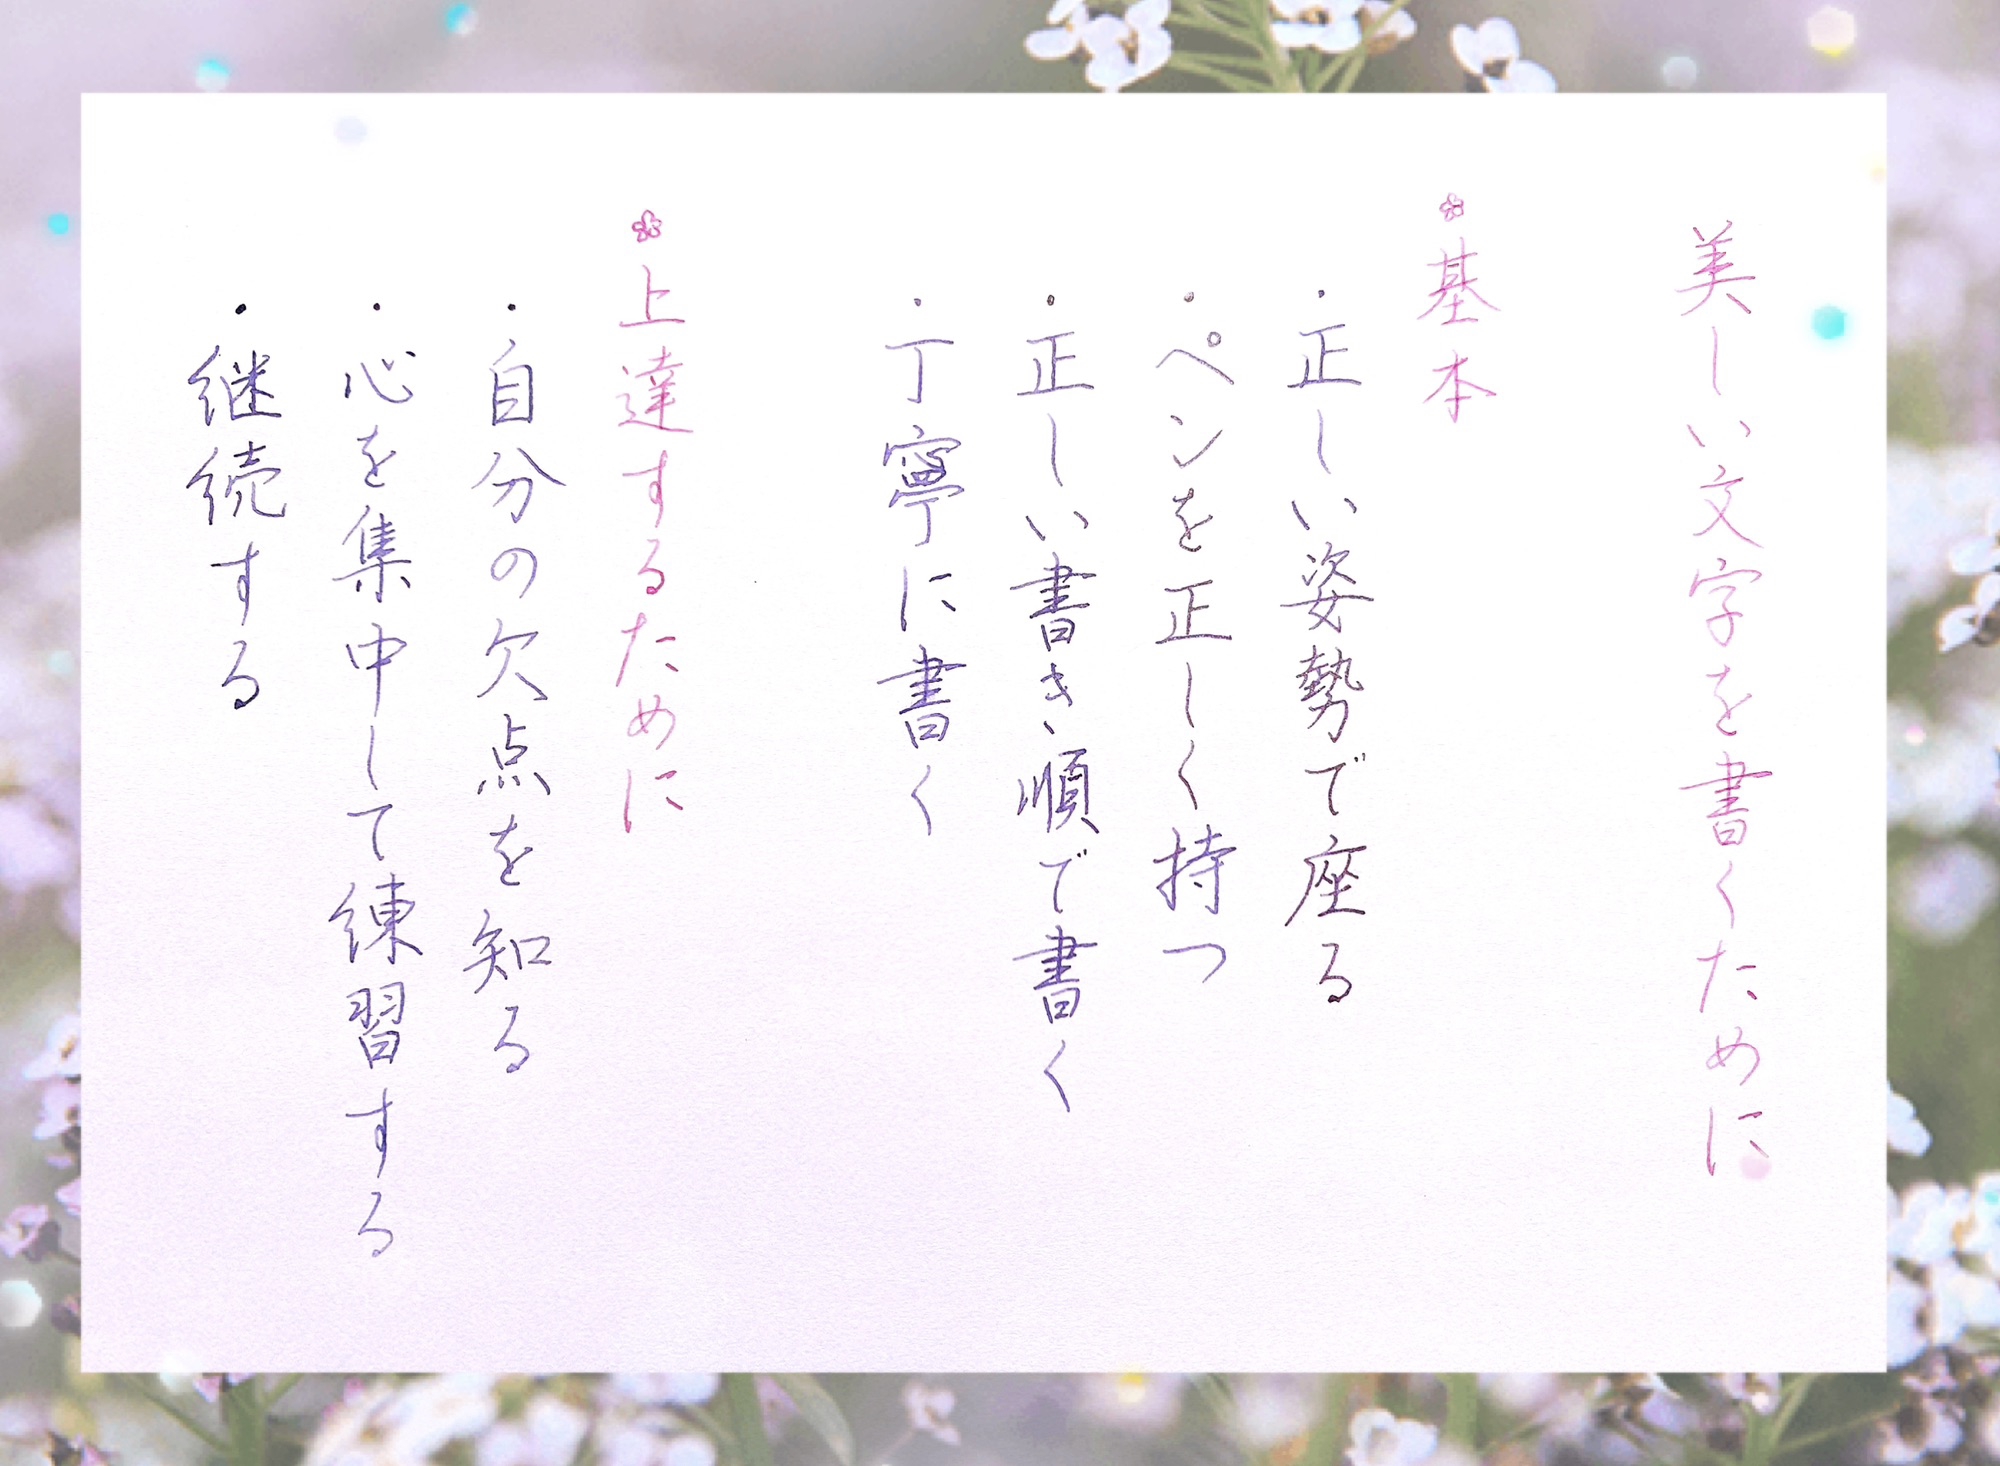 美しい文字を書くために
✿基本
・正しい姿勢で座る
・ペンを正しく持つ
・正しい書き順で書く
・丁寧に書く
✿上達するために
・自分の欠点を知る
・心を集中して練習する
・継続する